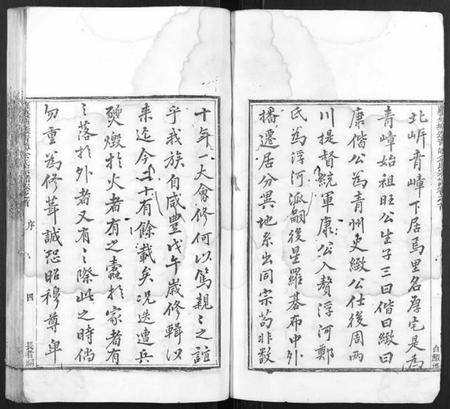 北㟁青嶂下居焉里名厚宅是為
青嶂始祖旺公生子三曰偕曰緻曰
康偕公為青州吏緻公仕後周兩
川提督統軍康公入贅浮河鄭
氏為浮河派嗣後星羅碁布中外
播遷居分異地系出同宗苟非數
十年一大會修何以篤親〻之誼
乎我族自咸豐戊午歲修輯以
來迄今二十有餘載矣况迭遭兵
燹燬扵火者有之蠹扵家者有
〻落扵外者又有〻際此之時倘
勿重為修葺誠恐昭穆尊卑
序
四